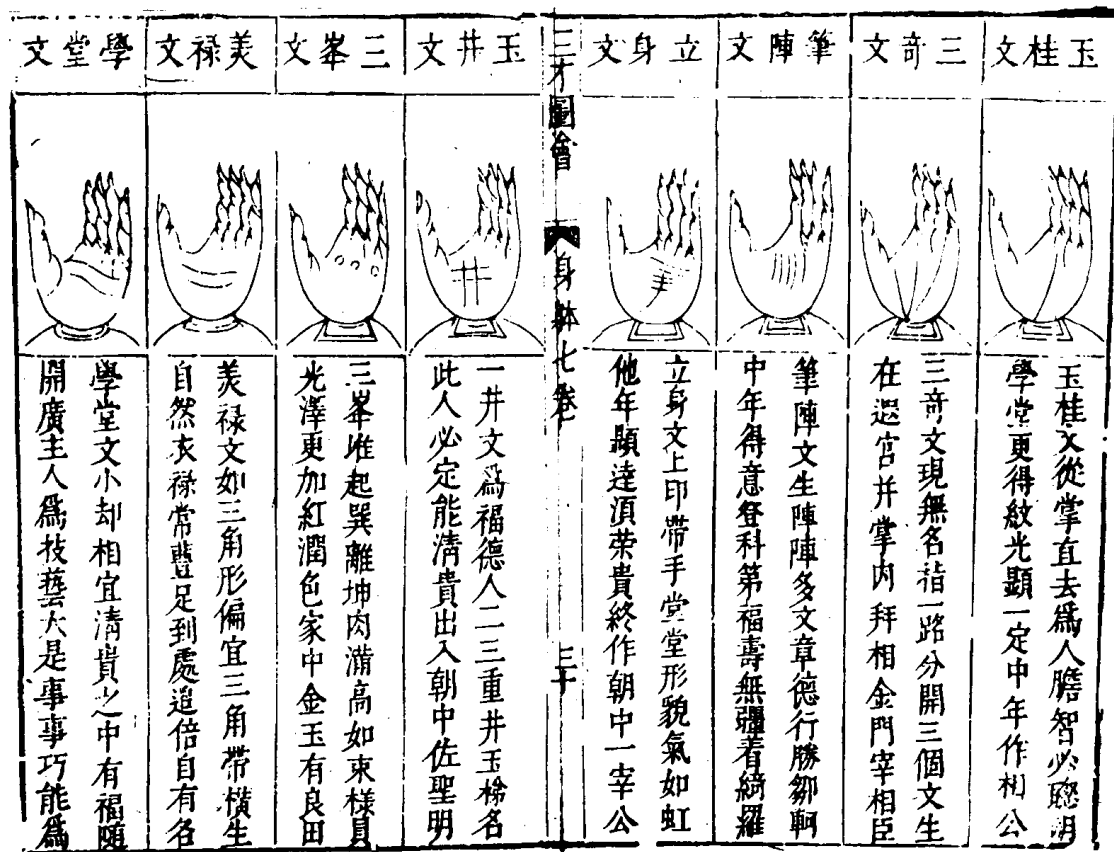 玉桂文
玉桂文從掌直去爲人膽智必聰明
學堂更得紋光顯一定中年作相公
三奇文
三奇文現無名指一路分開三個文生
在迟宮并掌内拜相金門宰相臣
筆陣文
筆陣文生陣陣多文章德行勝鄒軻
中年得意登科第福壽無疆着綺羅
立身文
立身文上印帶手堂堂形貌氣如虹
他年顯達湏荣貴終作朝中一宰公
三才圖會
身体七卷
三十
玉井文
一井文爲福德人二三重井玉梯名
此人必定能清貴出入朝中佐聖明
三峯文
三峯堆起巽離坤肉滿高如束樣員
光澤更加紅潤色家中金玉有良田
美禄文
美禄文如三角形偏宜三角帶橫生
自然衣禄常豐足到處追倍自有名
學堂文
學堂文小却相宜清貴之中有福随
開廣主人爲技藝大是事事巧能爲